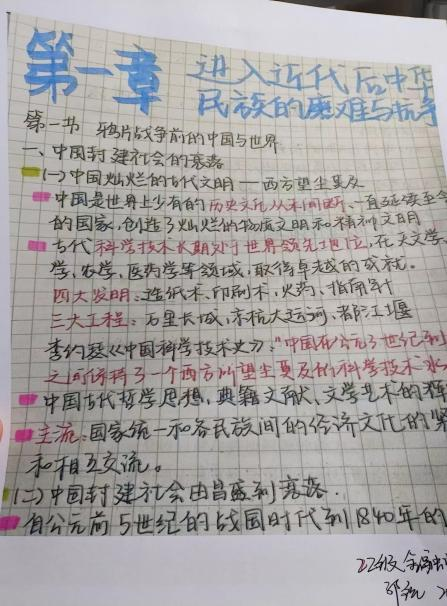 第一章
进入近代后中华
民族的磨难与抗争
第一节 鸦片战争前的中国与世界
一、中国封建社会的衰落
(一)中国灿烂的古代文明——西方望尘莫及
中国是世界上少有的历史文化从未间断、一直延续至今
的国家,创造了灿烂的物质文明和精神文明
古代科学技术长期处于世界领先地位,在天文学
学,农学,医药学等领域,取得卓越的成就。
四大发明:造纸术、印刷术,火药、指南针
三大工程:万里长城,京杭大运河、都江堰
李约瑟《中国科学技术史》:"中国在公元3世纪到
之间保持了一个西方所望尘莫及的科学技术水
中国古代哲学思想,典籍文献、文学艺术的
主流:国家统一和各民族间的经济文化的
和相互交流。
(二)中国封建社会由昌盛到衰落.
自公元前5世纪的战国时代到1840年的
22级金融